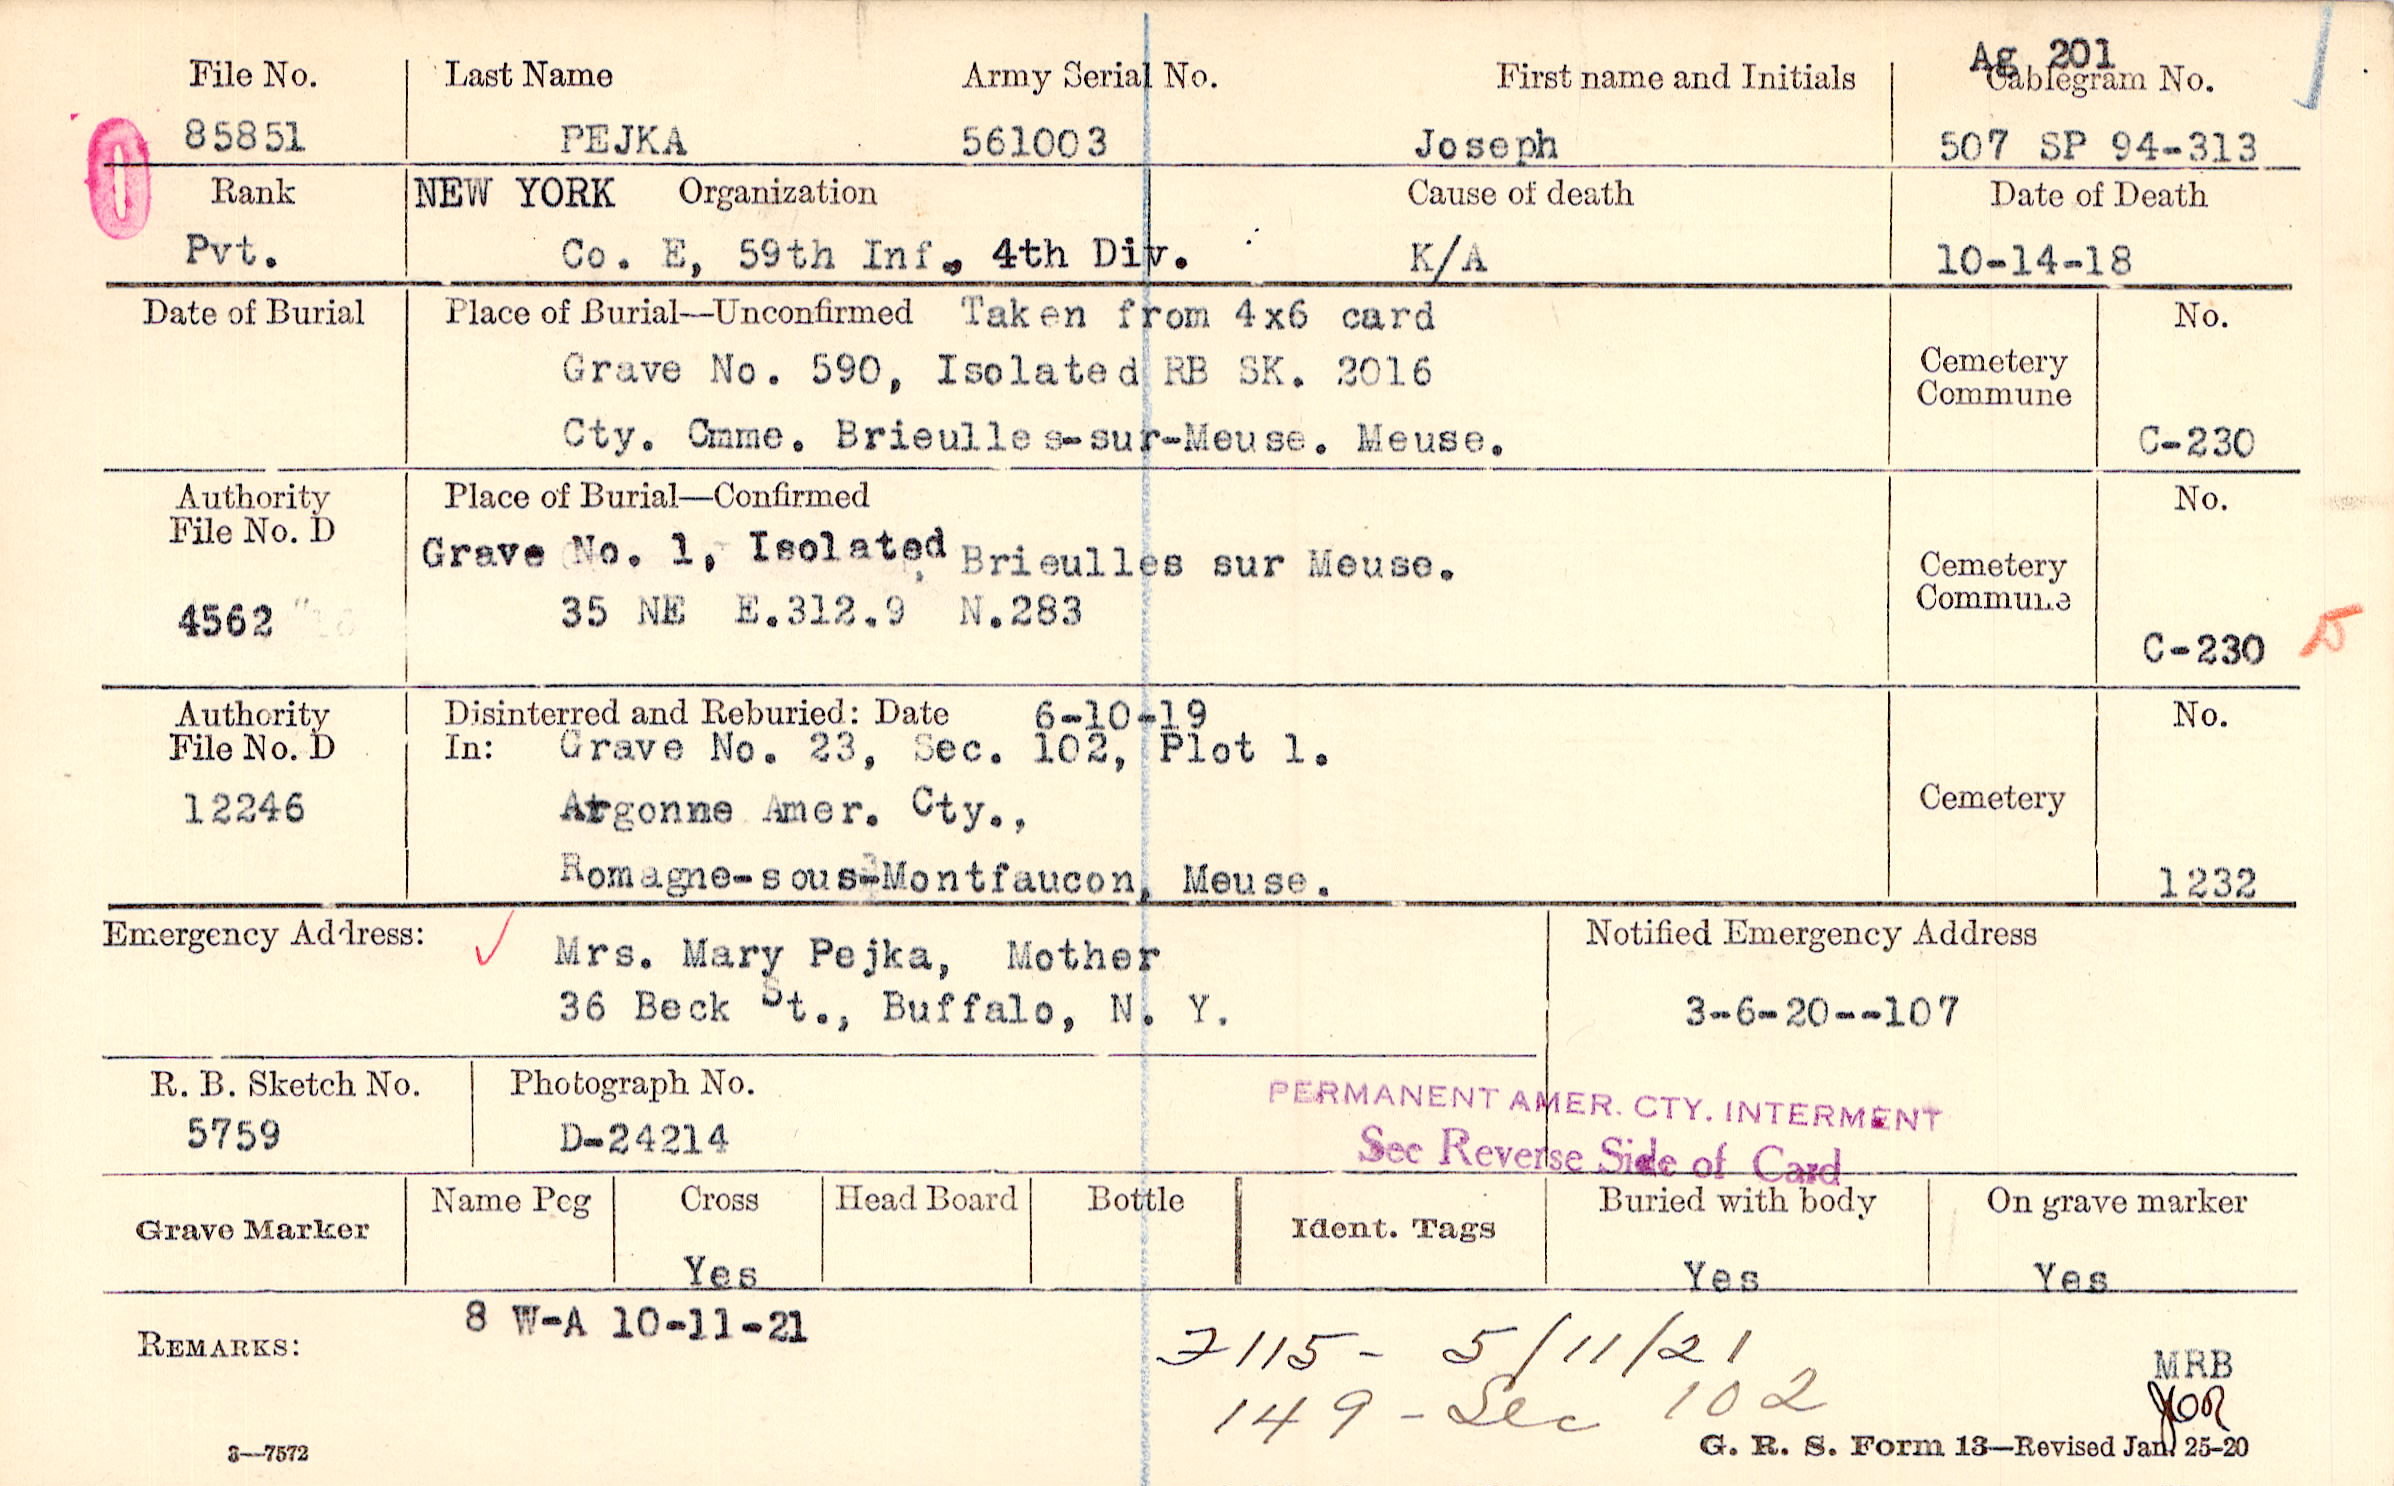 Ag 201
File No. Last Name Army Serial No. First name and Initials Cablegram No.
85851 PEJKA 561003 Joseph 507 SP 94-313
Rank NEW YORK Organization Cause of death Date of Death
Pvt. Co. E, 59th Inf., 4th Div. K/A 10-14-18
Date of Burial Place of Burial—Unconfirmed Taken from 4x6 card No.
Grave No. 590, Isolated RB SK. 2016 Cemetery
Commune
Cty. Cmme. Brieulles-sur-Meuse. Meuse. C-230
Authority Place of Burial—Confirmed No.
File No. D
Grave No. 1, Isolated, Brieulles sur Meuse. Cemetery
4562 35 NE E.312.9 N.283 Commune
C-230
Authority Disinterred and Reburied: Date 6-10-19 No.
File No. D In: Grave No. 23, Sec. 102, Plot 1.
12246 Argonne Amer. Cty., Cemetery
Romagne-sous-Montfaucon, Meuse. 1232
Emergency Address: Mrs. Mary Pejka, Mother Notified Emergency Address
36 Beck St., Buffalo, N. Y. 3-6-20--107
R. B. Sketch No. Photograph No.
5759 D-24214
PERMANENT AMER. CTY. INTERMENT
See Reverse Side of Card
Grave Marker Name Peg Cross Head Board Bottle Ident. Tags Buried with body On grave marker
Yes Yes Yes
8 W-A 10-11-21
REMARKS: 7115 - 5/11/21 MRB
149 - Sec 102
3—7572 G. R. S. Form 13—Revised Jan. 25-20